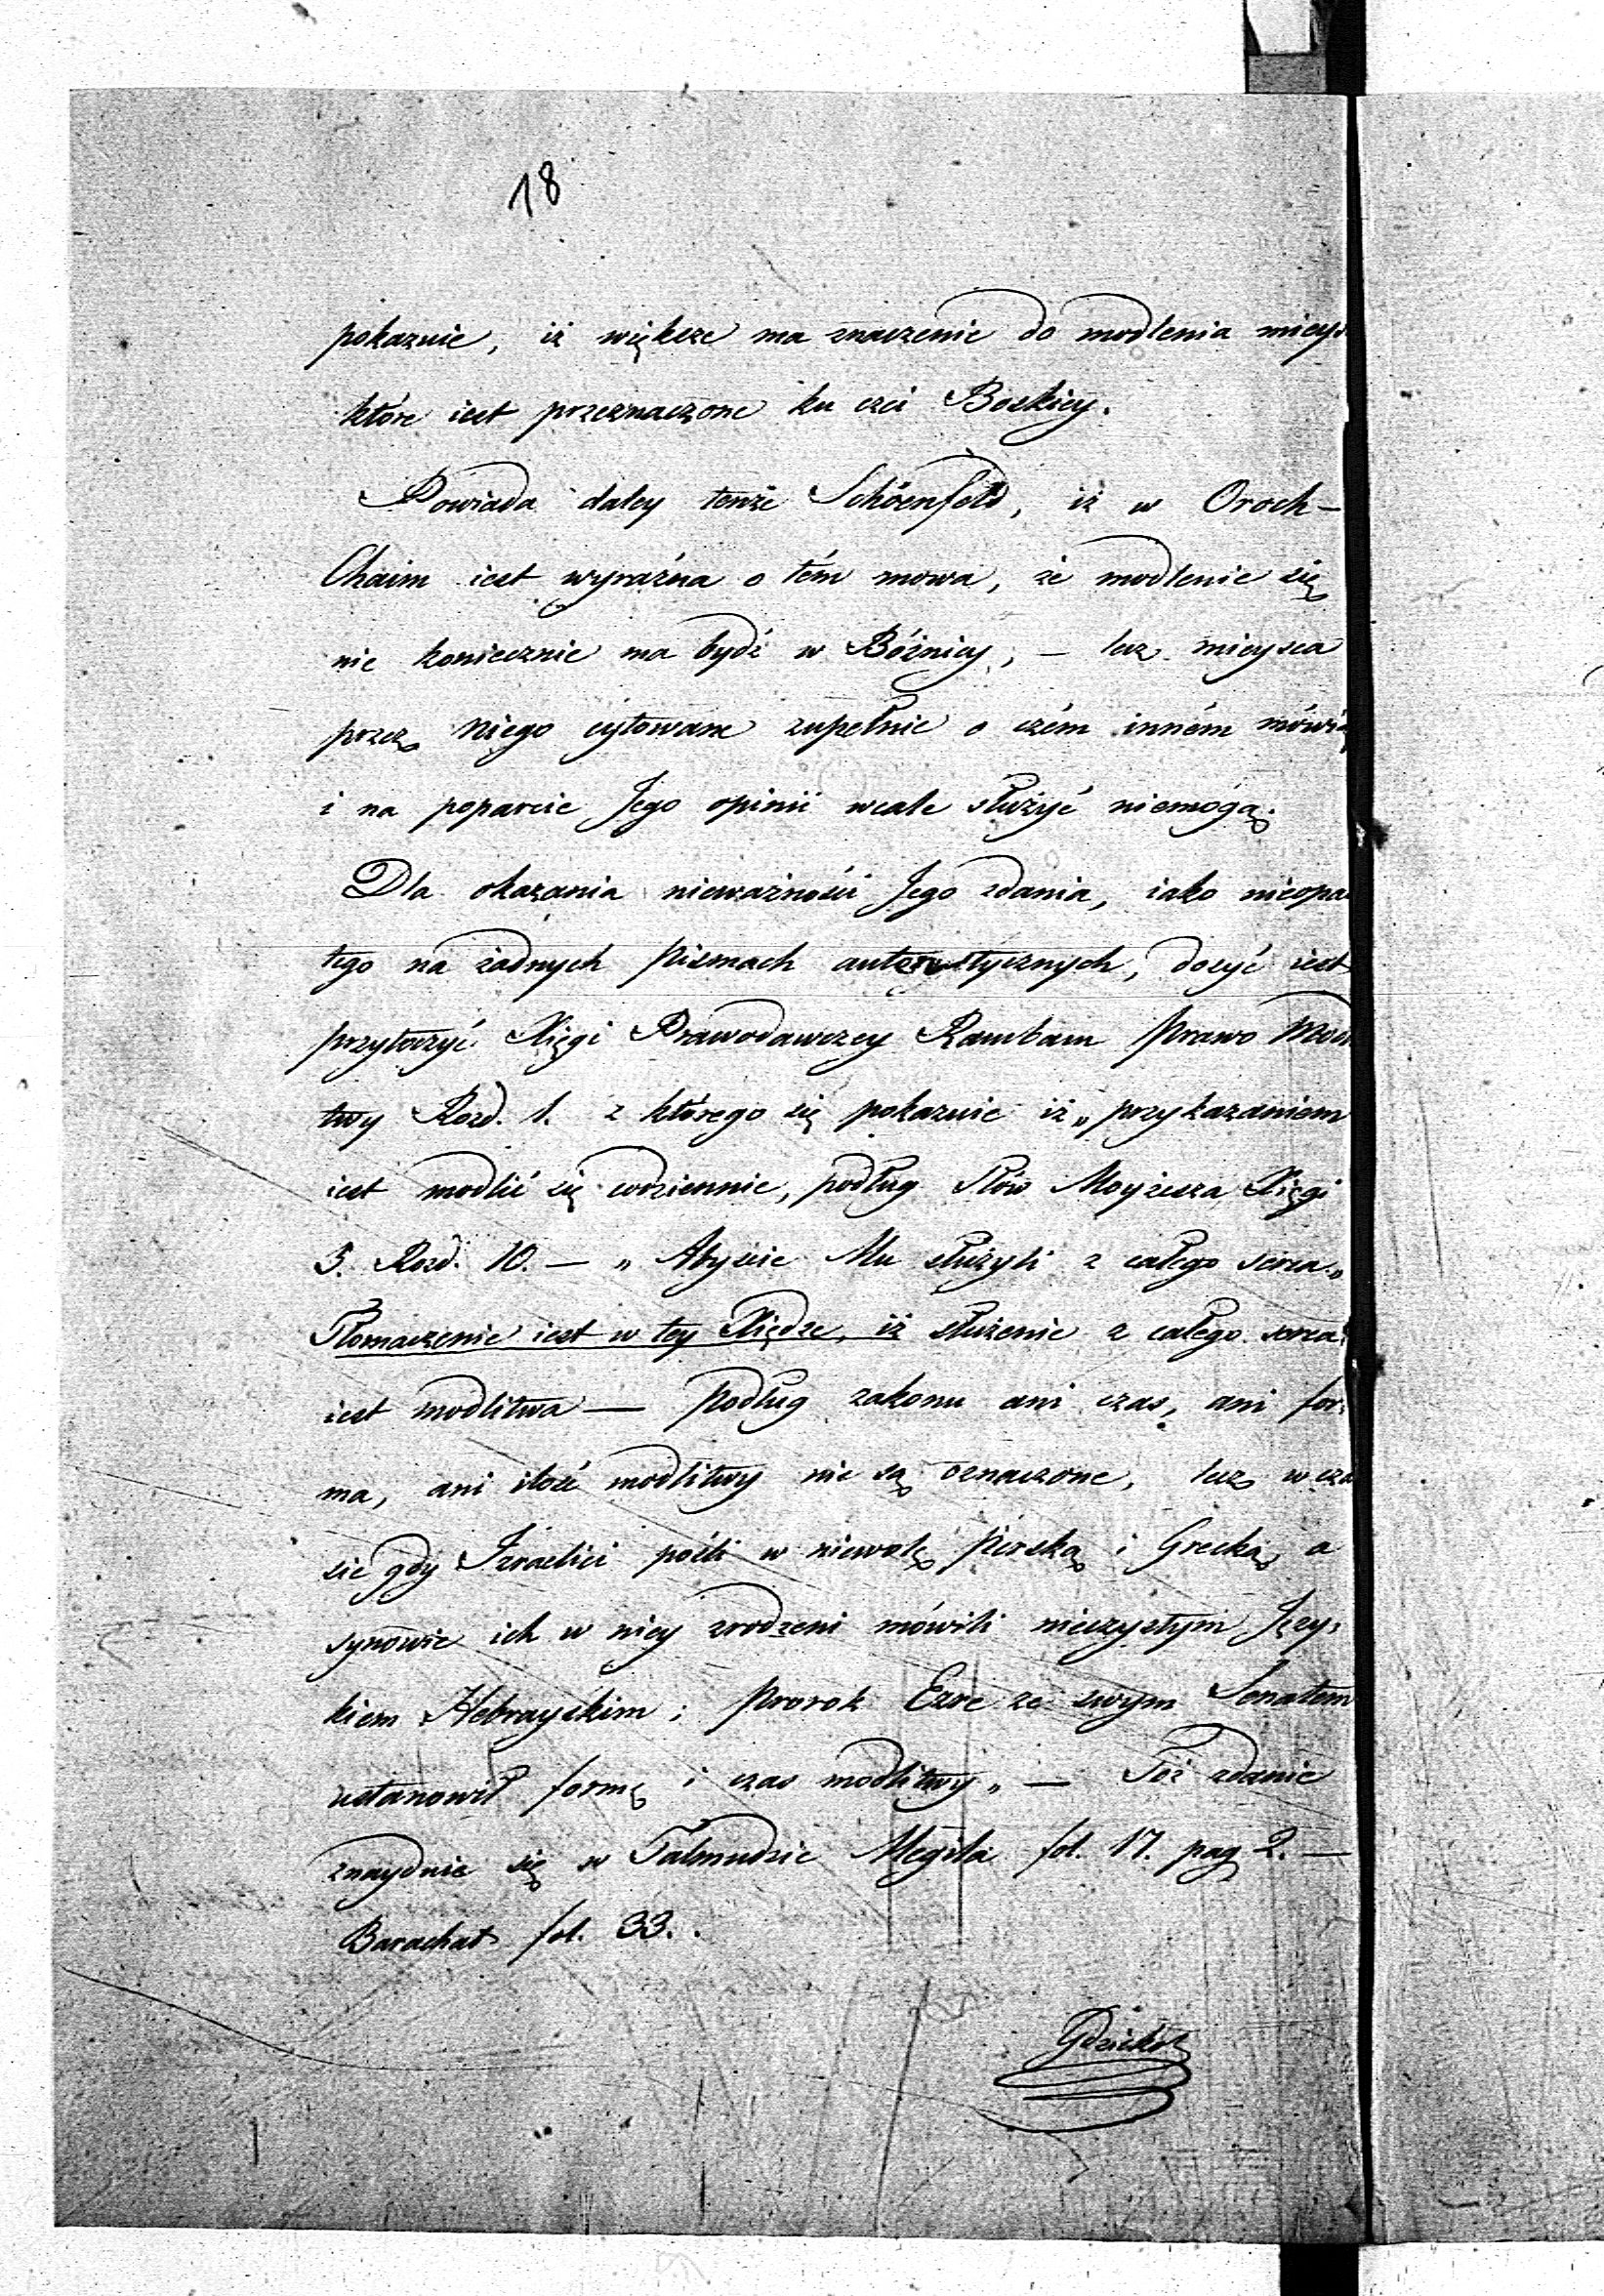 18
pokazuie, iż większe ma znaczenie do modlenia mieys
które iest przeznaczone ku czci Boskiey.
Powiada daley tenże Schöenfeld, iż w Oroch-
Chaim iest wyraźna o tém mowa, że modlenie się
nie koniecznie ma bydź w Bóżnicy, – lecz mieysca
przez niego cytowane zupełnie o czém inném mówią
i na poparcie Jego opinii wcale służyć niemogą.
Dla okazania nieważności Jego zdania, iako nieopar
tego na żadnych Pismach autorystycznych, dosyć iest
przytoczyć Xięgi Prawodawczey Rambam Prawo Mod
twy Rozd. 1. z którego się pokazuie iż „przykazaniem
iest modlić się codziennie, podług Słów Moyżesza Xięgi
5. Rozd. 10. – „Abyście Mu służyli z całego serca„
Tłomaczenie iest w tey Xiędze, iż służenie z całego serca
iest modlitwa – Podług zakonu ani czas, ani for:
ma, ani ilość modlitwy nie są oznaczone, lecz w cza
sie gdy Izraelici pośli w niewolę Pirską i Grecką a
synowie ich w niey zrodzeni mówili nieczystym Języ:
kiem Hebrayskim; Prorok Ezre ze swym Senatem
ustanowił formę i czas modlitwy„ – Toż zdanie
znayduie się w Talmudzie Megila fol. 17. pag 2. –
Barachat fol. 33.